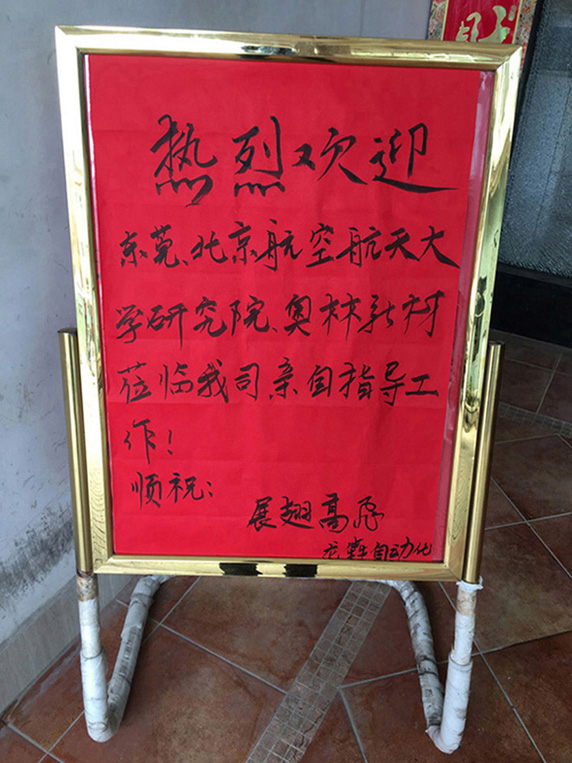 热烈欢迎
东莞、北京航空航天大
学研究院、奥林新材
莅临我司,亲自指导工
作!
顺祝:
展翅高飞
自动化